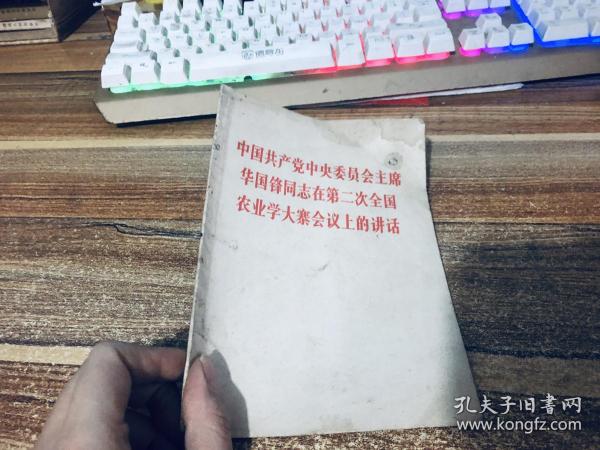 中国共产党中央委员会主席
华国锋同志在第二次全国
农业学大寨会议上的讲话
孔夫子旧书网
www.kongfz.com